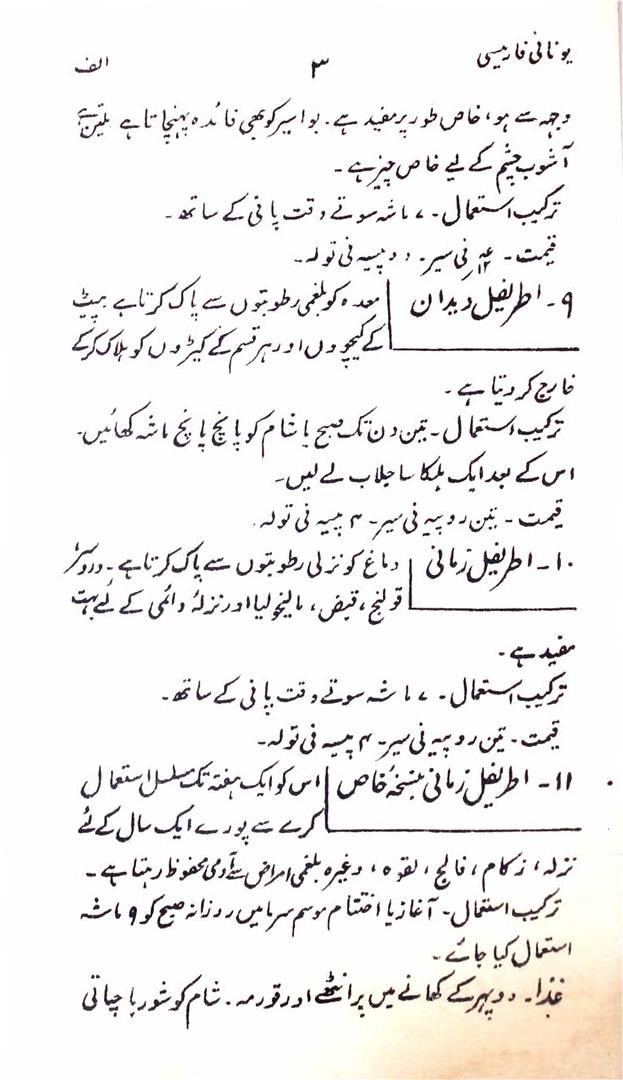 یونانی فارمیسی ۳ الف
وجہ سے ہو، خاص طور پر مفید ہے۔ بواسیر کو بھی فائدہ پہنچاتا ہے ملین ہے
آشوبِ چشم کے لیے خاص چیز ہے۔
ترکیب استعمال۔ ۷ ماشہ سوتے وقت پانی کے ساتھ۔
قیمت۔ فی سیر۔ دو پیسہ فی تولہ۔
۹۔ اطریفل دیدان معدہ کو بلغمی رطوبتوں سے پاک کرتا ہے پیٹ
کے کیچووں اور ہر قسم کے کیڑوں کو ہلاک کرکے
خارج کر دیتا ہے۔
ترکیب استعمال۔ تین دن تک صبح یا شام کو پانچ پانچ ماشہ کھائیں۔
اس کے بعد ایک ہلکا سا جلاب لے لیں۔
قیمت۔ تین روپیہ فی سیر۔ ۳ پیسہ فی تولہ۔
۱۰۔ اطریفل زمانی دماغ کو نزلی رطوبتوں سے پاک کرتا ہے۔ دردسر
قولنج، قبض، مالیخولیا اور نزلۂ دائمی کے لئے بہت
مفید ہے۔
ترکیب استعمال۔ ۷ ماشہ سوتے وقت پانی کے ساتھ۔
قیمت۔ تین روپیہ فی سیر۔ ۳ پیسہ فی تولہ۔
۱۱۔ اطریفل زمانی بنسخۂ خاص اس کو ایک ہفتہ تک مسلسل استعمال
کرنے سے پورے ایک سال کے لئے
نزلہ، زکام، فالج، لقوہ، وغیرہ بلغمی امراض سے آدمی محفوظ رہتا ہے۔
ترکیب استعمال۔ آغاز یا اختتام موسم سرما میں روزانہ صبح کو ۹ ماشہ
استعمال کیا جائے۔
غذا۔ دوپہر کے کھانے میں پراٹھے اور قورمہ۔ شام کو شوربا چپاتی